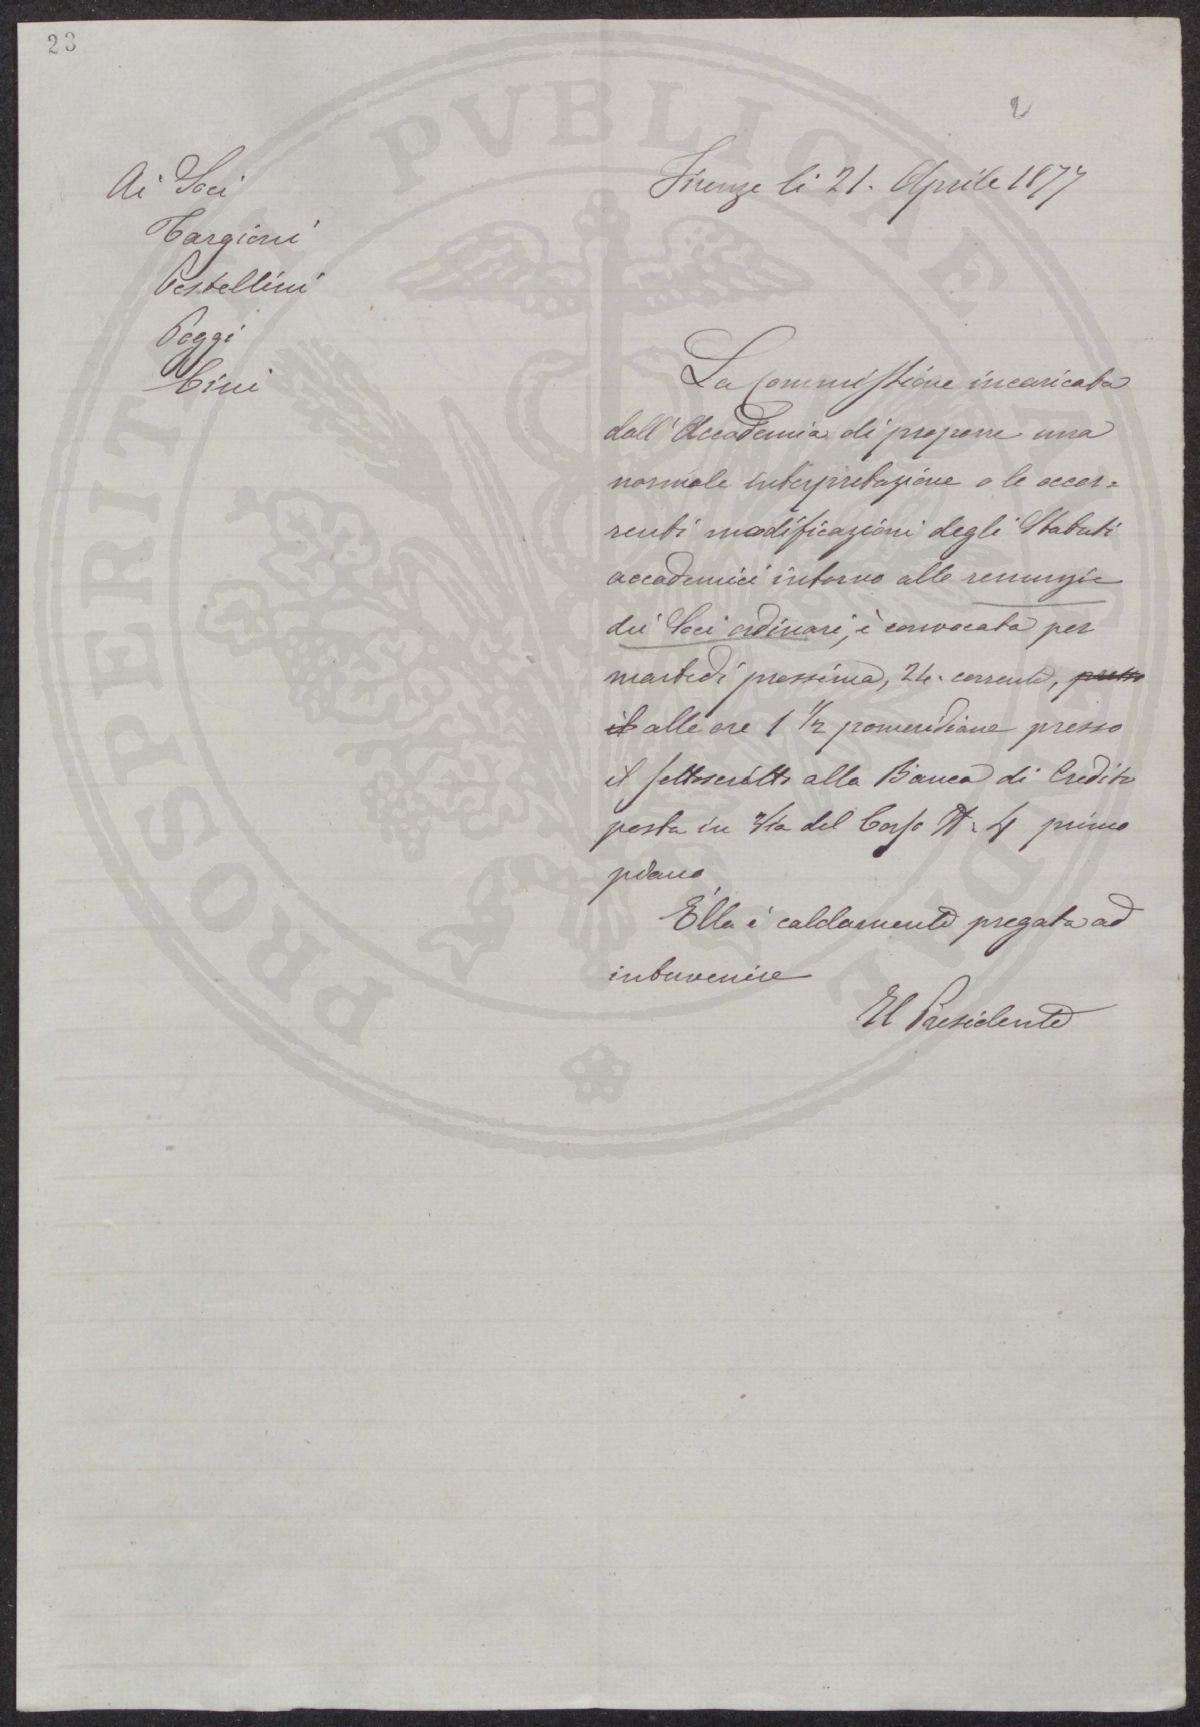 23
2
Ai Soci
Targioni
Pestellini
Poggi
Cini
Firenze li 21. Aprile 1877
La Commissione incaricata
dall'Accademia di proporre una
normale interpretazione o le occor=
renti modificazioni degli Statuti
accademici intorno alle renunzie
dei Soci ordinari, è convocata per
martedì prossimo, 24. corrente, presso
il alle ore 1 1/2 pomeridiane presso
il sottoscritto alla Banca di Credito
posta in Via del Corso N. 4 primo
piano
Ella è caldamente pregata ad
intervenire
Il Presidente
PROSPERITATI PVBLICAE AVGENDAE